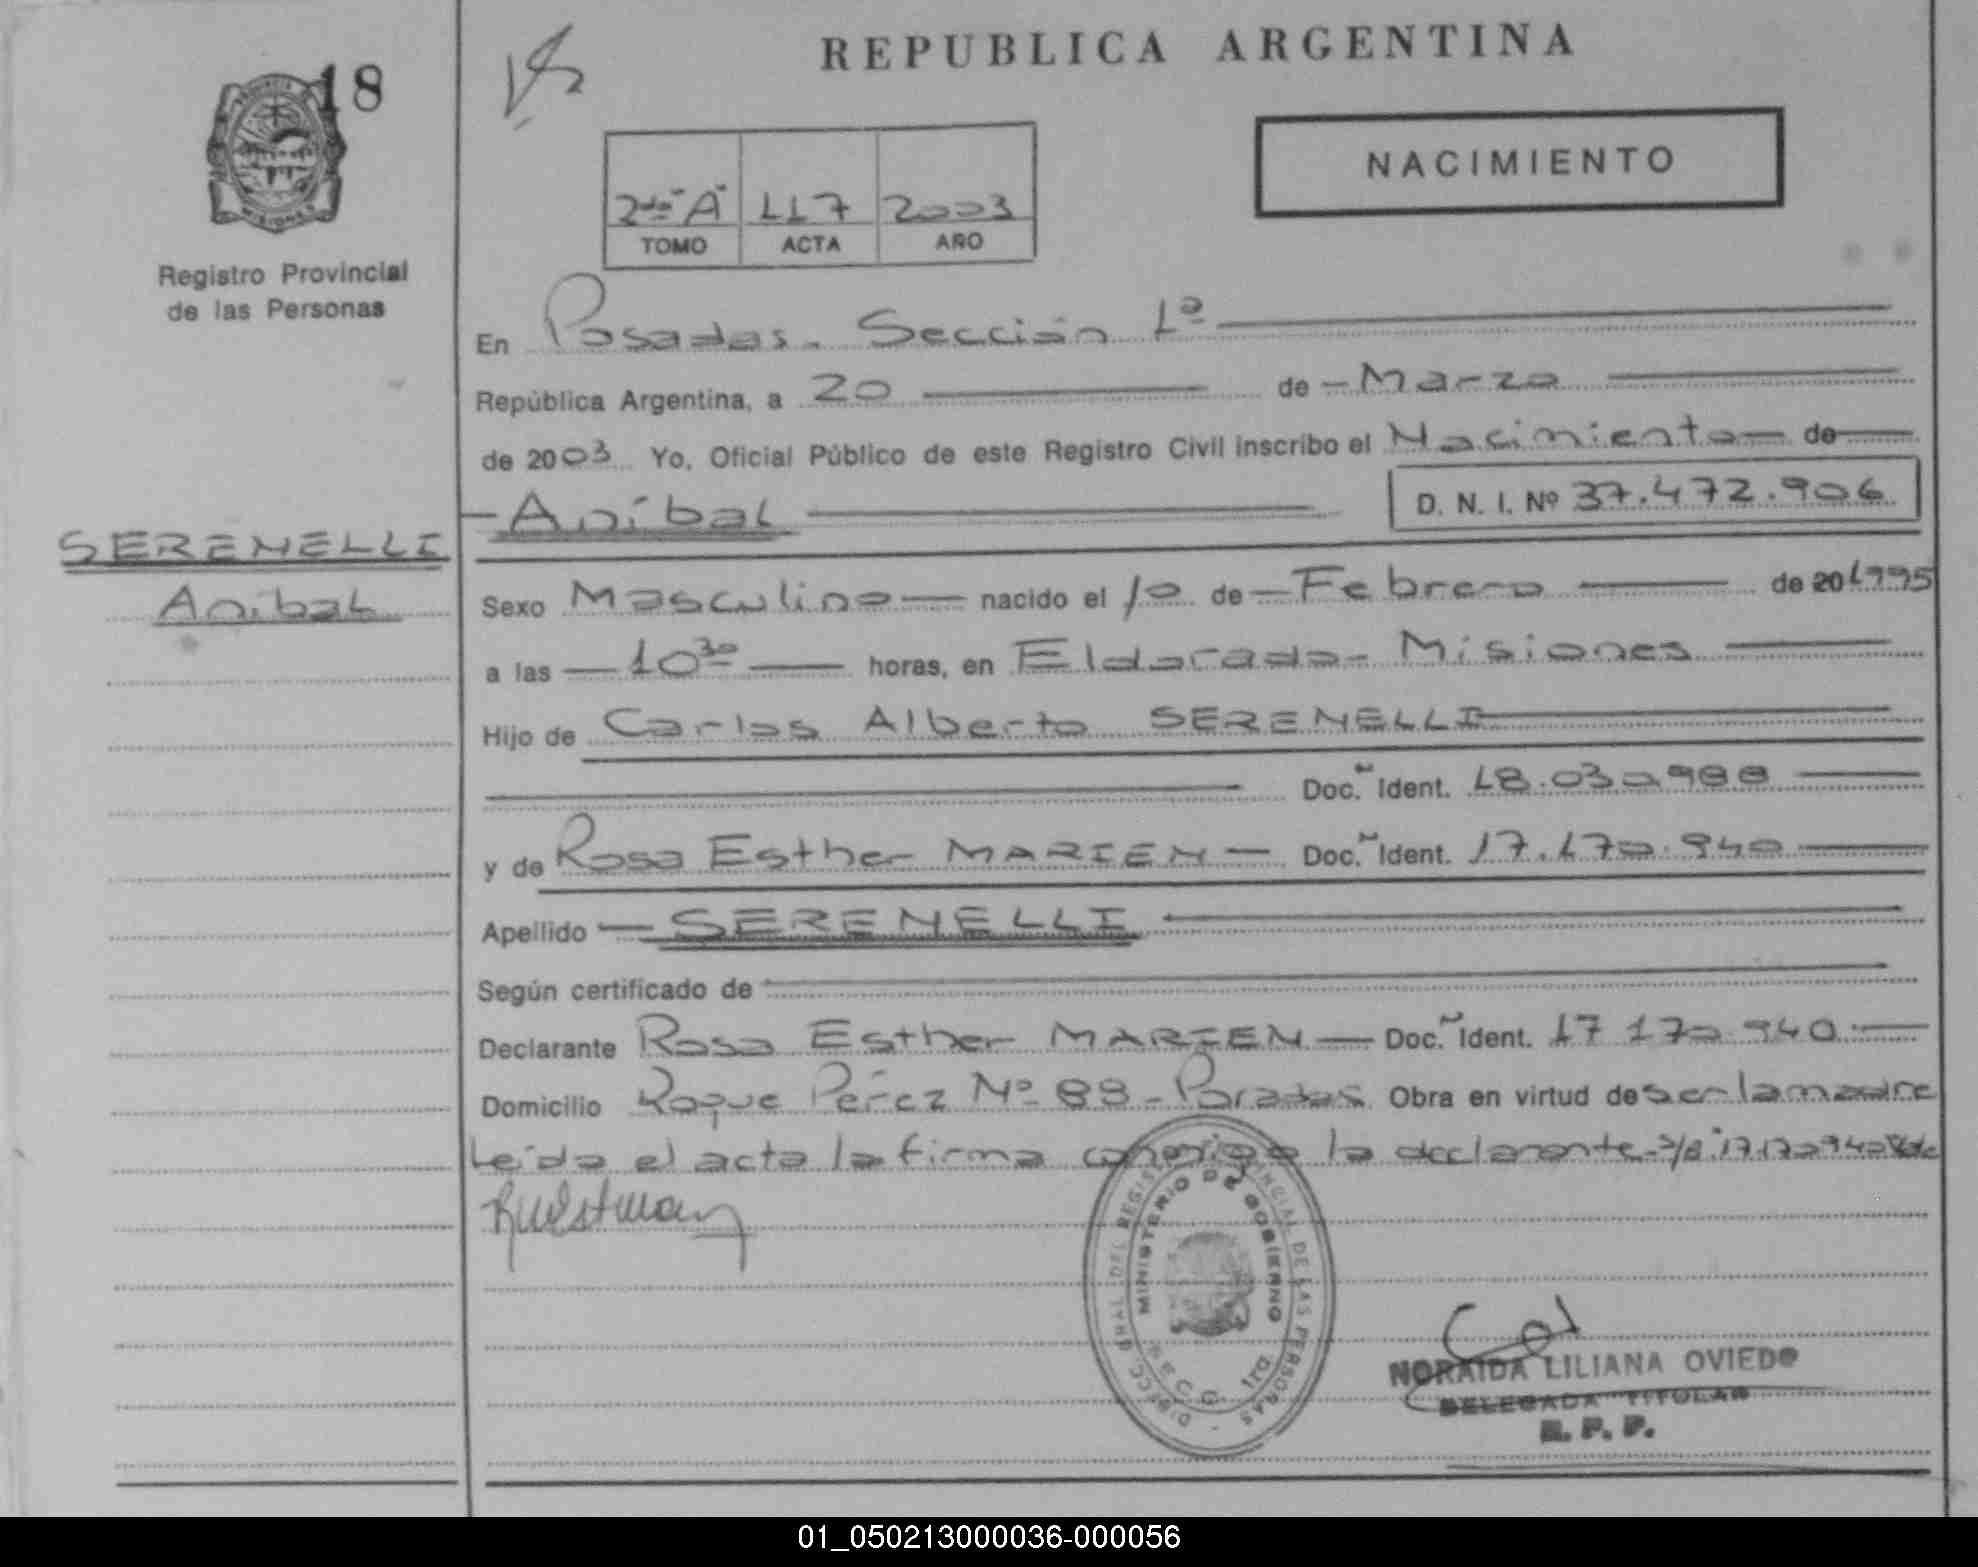 18
REPUBLICA ARGENTINA
NACIMIENTO
2do "A" 117 2003
TOMO ACTA AÑO
Registro Provincial
de las Personas
En Posadas. Sección 1ª
República Argentina, a 20 de Marzo
de 2003 Yo, Oficial Público de este Registro Civil inscribo el Nacimiento de
Aníbal D. N. I. Nº 37.472.906
SERENELLI
Aníbal
Sexo Masculino nacido el 1º de Febrero de 20 1995
a las 10 30 horas, en Eldorado - Misiones
Hijo de Carlos Alberto SERENELLI
Doc. Ident. 18.030988
y de Rosa Esther MARIEN Doc. Ident. 17.170.940
Apellido SERENELLI
Según certificado de
Declarante Rosa Esther MARIEN Doc. Ident. 17 170 940
Domicilio Roque Pérez Nº 88 - Posadas Obra en virtud de ser la madre
Leída el acta la firma conmigo la declarante - S/R "17.170940"
DIRECC. GRAL DEL REGISTRO PROVINCIAL DE LAS PERSONAS
MINISTERIO DE GOBIERNO
SECC. 1ra
NORAIDA LILIANA OVIEDO
DELEGADA TITULAR
R. P. P.
01_050213000036-000056